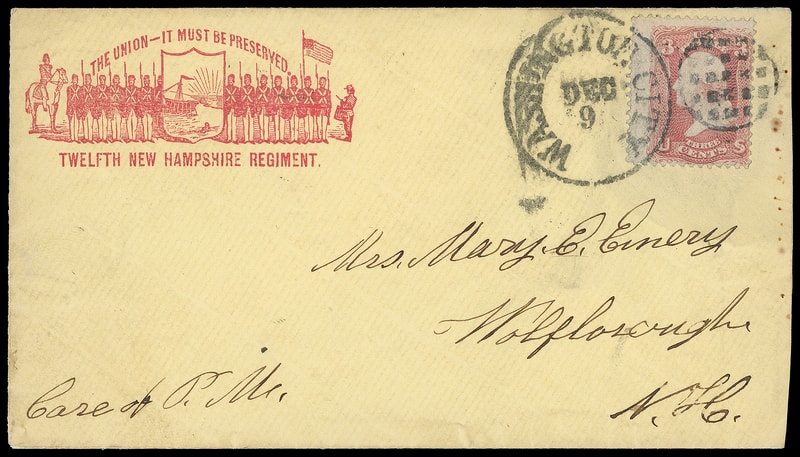 THE UNION—IT MUST BE PRESERVED.
TWELFTH NEW HAMPSHIRE REGIMENT.
WASHINGTON CITY
DEC
9
3
U S
THREE
CENTS
Mrs. Mary. E. Emery
Wolfborough
N. H.
Care of P. M.